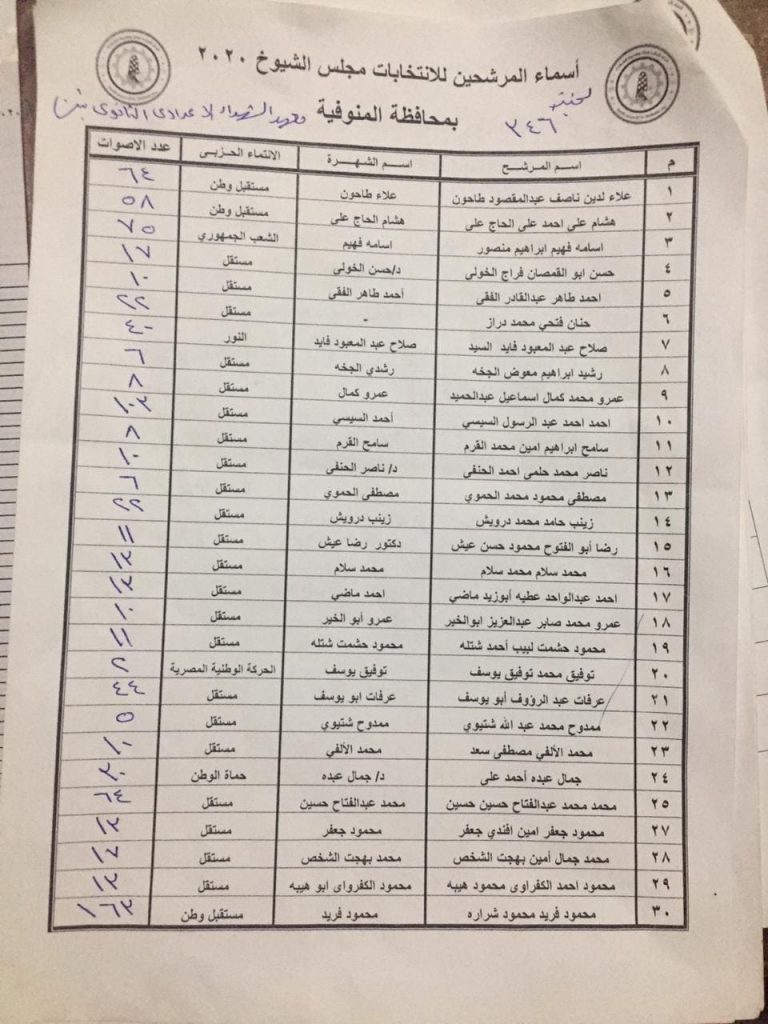 أسماء المرشحين للانتخابات مجلس الشيوخ ٢٠٢٠
بمحافظة المنوفية
لجنة ٣٤٦
معهد الشهداء الاعدادى الثانوى بنين
م اسم المرشح اسم الشهرة الانتماء الحزبى عدد الاصوات
١ علاء لدين ناصف عبدالمقصود طاحون علاء طاحون مستقبل وطن ٦٤
٢ هشام على احمد على الحاج على هشام الحاج على مستقبل وطن ٥٨
٣ اسامه فهيم ابراهيم منصور اسامه فهيم الشعب الجمهوري ٧٥
٤ حسن ابو القمصان فراج الخولى د/حسن الخولى مستقل ١٧
٥ احمد طاهر عبدالقادر الفقى أحمد طاهر الفقى مستقل ١٠
٦ حنان فتحي محمد دراز - مستقل ٢٢
٧ صلاح عبد المعبود فايد السيد صلاح عبد المعبود فايد النور ٤٠
٨ رشيد ابراهيم معوض الجخه رشدي الجخه مستقل ٦
٩ عمرو محمد كمال اسماعيل عبدالحميد عمرو كمال مستقل ٨
١٠ احمد احمد عبد الرسول السيسي أحمد السيسي مستقل ١٠٣
١١ سامح ابراهيم امين محمد القرم سامح القرم مستقل ٨
١٢ ناصر محمد حلمى احمد الحنفى د/ ناصر الحنفى مستقل ١٠
١٣ مصطفى محمود محمد الحموي مصطفى الحموي مستقل ٦
١٤ زينب حامد محمد درويش زينب درويش مستقل ٢٢
١٥ رضا أبو الفتوح محمود حسن عيش دكتور رضا عيش مستقل ١١
١٦ محمد سلام محمد سلام محمد سلام مستقل
١٧ احمد عبدالواحد عطيه أبوزيد ماضي احمد ماضي مستقل
١٨ عمرو محمد صابر عبدالعزيز ابوالخير عمرو أبو الخير مستقل ١٠
١٩ محمود حشمت لبيب أحمد شتله محمود حشمت شتله مستقل ١١
٢٠ توفيق محمد توفيق يوسف توفيق يوسف الحركة الوطنية المصرية ٢
٢١ عرفات عبد الرؤوف أبو يوسف عرفات ابو يوسف مستقل ٤٤
٢٢ ممدوح محمد عبد الله شتيوي ممدوح شتيوي مستقل ٥
٢٣ محمد الألفي مصطفى سعد محمد الألفي مستقل ١٠
٢٤ جمال عبده أحمد على د/ جمال عبده حماة الوطن
٢٥ محمد محمد عبدالفتاح حسين حسين محمد عبدالفتاح حسين مستقل ٦٤
٢٧ محمود جعفر امين افندي جعفر محمود جعفر مستقل
٢٨ محمد جمال أمين بهجت الشخص محمد بهجت الشخص مستقل
٢٩ محمود احمد الكفراوى محمود هيبه محمود الكفراوى ابو هيبه مستقل
٣٠ محمود فريد محمود شراره محمود فريد مستقبل وطن ١٦٣